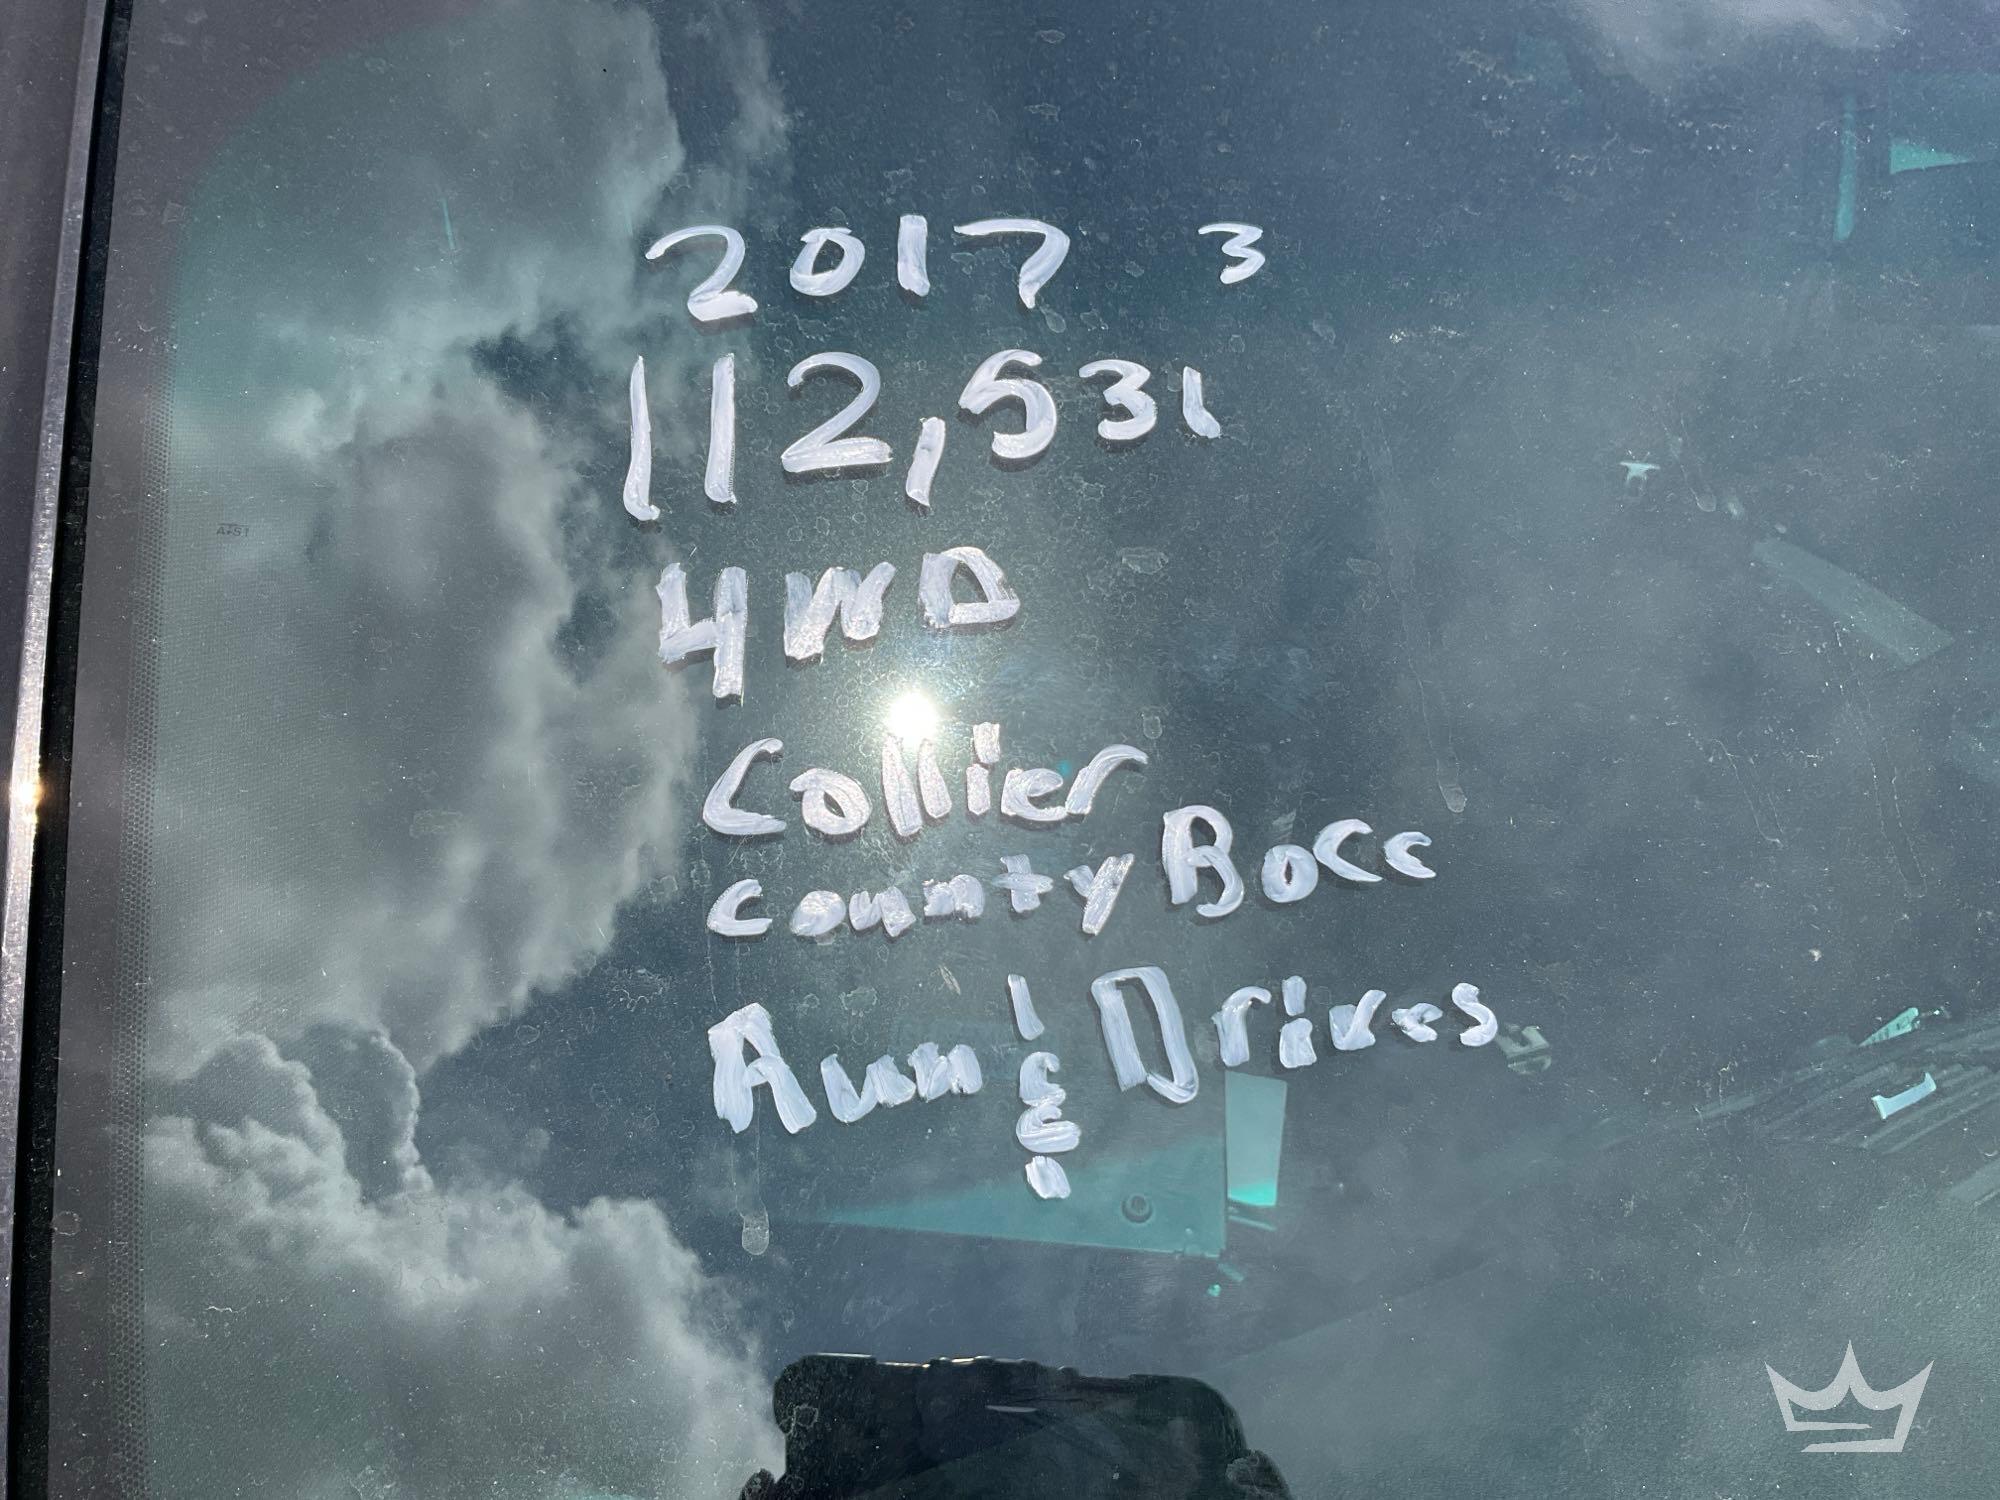 2017 3
112,531
4WD
Collier
County BOCC
Runs & Drives
AS1